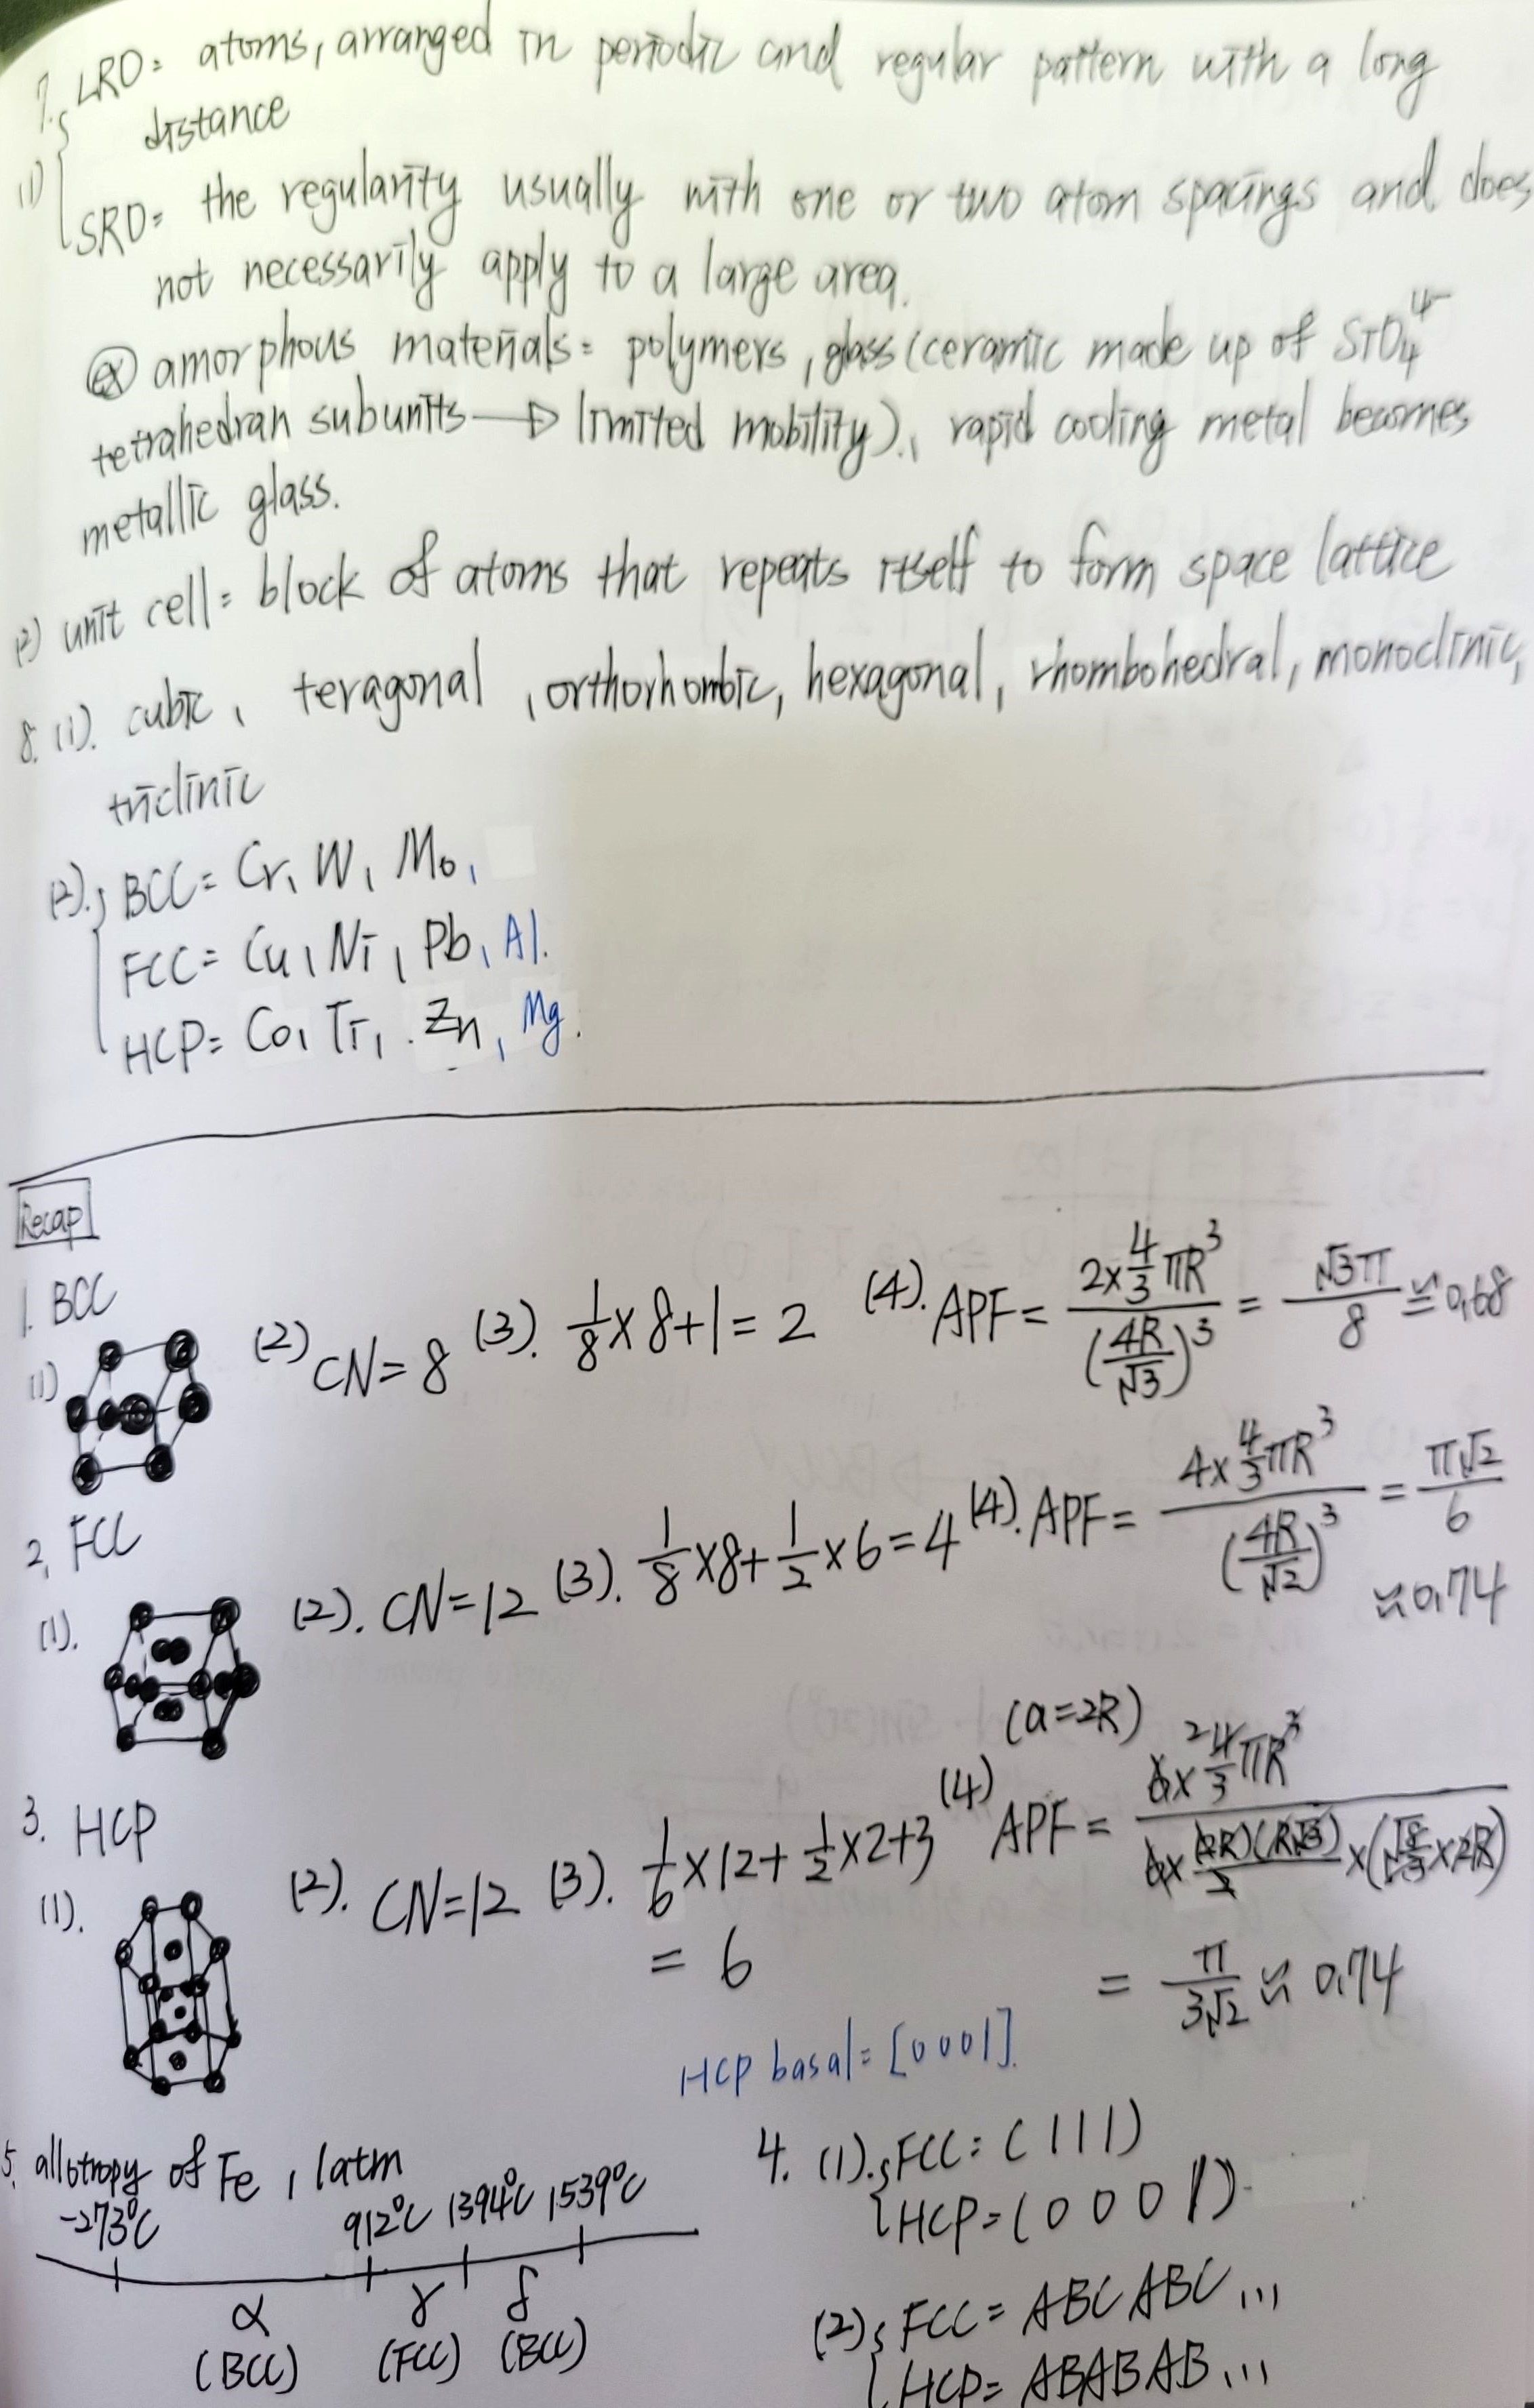 7. (1) { LRO= atoms, arranged in periodic and regular pattern with a long
distance
SRO= the regularity usually with one or two atom spacings and does
not necessarily apply to a large area.
ex) amorphous materials= polymers, glass (ceramic made up of SiO₄⁴⁻
tetrahedran subunits → limited mobility)., rapid cooling metal becomes
metallic glass.
(2) unit cell= block of atoms that repeats itself to form space lattice
8. (1). cubic, teragonal, orthorhombic, hexagonal, rhombohedral, monoclinic,
triclinic
(2). { BCC= Cr, W, Mo,
FCC= Cu, Ni, Pb, Al.
HCP= Co, Ti, Zn, Mg.
Recap
1. BCC
(1) (2) CN=8 (3). 1/8 × 8+1=2 (4). APF= (2×4/3 πR³)/(4R/√3)³ = √3π/8 ≒ 0.68
2. FCC
(1). (2). CN=12 (3). 1/8 ×8+ 1/2 ×6=4 (4). APF= (4×4/3 πR³)/(4R/√2)³ = π√2/6
≈0.74
3. HCP
(a=2R)
(1). (2). CN=12 (3). 1/6 ×12+ 1/2 ×2+3 (4) APF= (6×4/3 πR³)/(6× (2R)(R√3)/2 ×(√8/3 ×2R))
= 6
= π/3√2 ≈ 0.74
HCP basal= [0001].
4. (1). { FCC= (111)
HCP= (0001).
(2) { FCC= ABCABC...
HCP= ABABAB...
5. allotropy of Fe, 1atm
-273°C 912°C 1394°C 1539°C
α γ δ
(BCC) (FCC) (BCC)